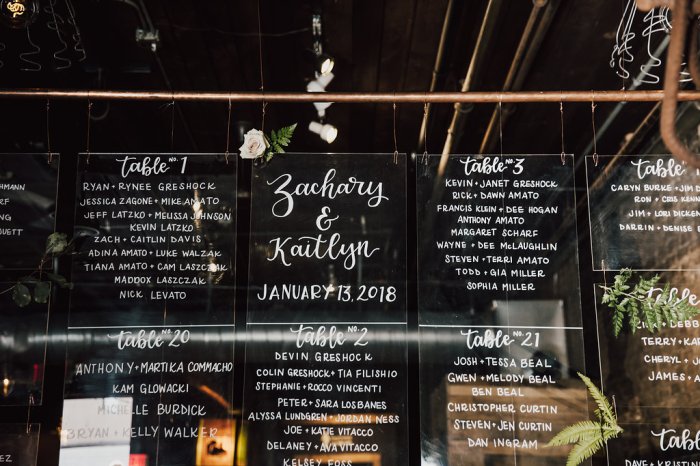 HMANN
RF)
NG
UETT
EZ
Table No. 1
RYAN + RYNEE GRESHOCK
JESSICA ZAGONE + MIKE AMATO
JEFF LATZKO + MELISSA JOHNSON
KEVIN LATZKO
ZACH + CAITLIN DAVIS
ADINA AMATO + LUKE WALZAK
TIANA AMATO + CAM LASZCZAK
MADDOX LASZCZAK
NICK LEVATO
Table No. 20
ANTHONY + MARTIKA COMMACHO
KAM GLOWACKI
MICHELLE BURDICK
BRYAN + KELLY WALKER
Zachary
&
Kaitlyn
JANUARY 13, 2018
Table No. 2
DEVIN GRESHOCK
COLIN GRESHOCK + TIA FILISHIO
STEPHANIE + ROCCO VINCENTI
PETER + SARA LOSBANES
ALYSSA LUNDGREN + JORDAN NESS
JOE + KATIE VITACCO
DELANEY + AVA VITACCO
KELSEY FOSS
Table No. 3
KEVIN + JANET GRESHOCK
RICK + DAWN AMATO
FRANCIS KLEIN + DEE HOGAN
ANTHONY AMATO
MARGARET SCARFF
WAYNE + DEE MCLAUGHLIN
STEVEN + TERRI AMATO
TODD + GIA MILLER
SOPHIA MILLER
Table No. 21
JOSH + TESSA BEAL
GWEN + MELODY BEAL
BEN BEAL
CHRISTOPHER CURTIN
STEVEN + JEN CURTIN
DAN INGRAM
Table No.
CARYN BURKE + JIM
RON + CRIS KENN
JIM + LORI DICKER
DARRIN + DENISE
Table No.
LINDA + BEC
TERRY + KA
CHERYL + J
JAMES + A
Table
DAVE + KRISTIN